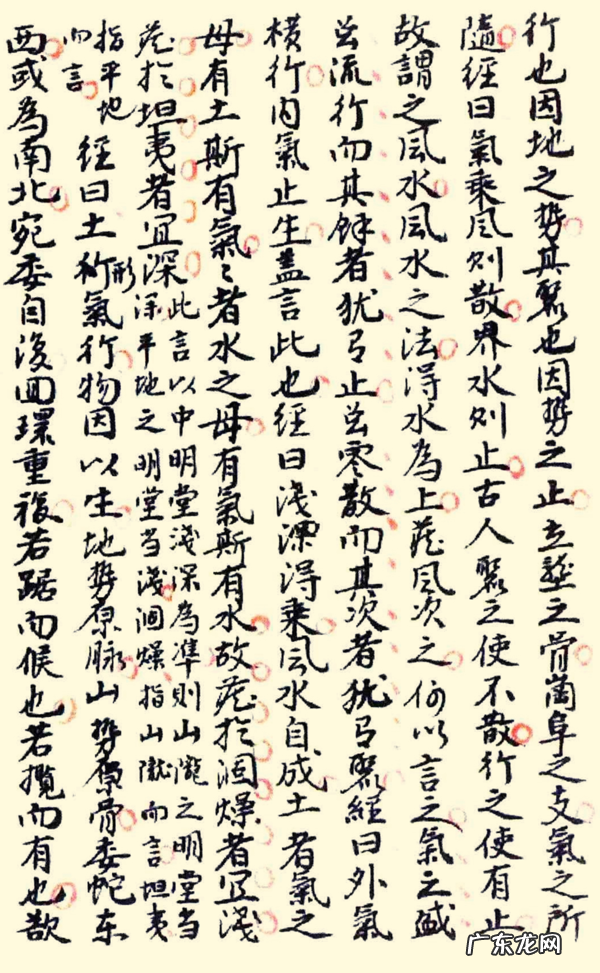 行也因地之势其聚也因势之止丘壠之骨崗阜之支氣之所
隨經曰氣乘風则散界水则止古人聚之使不散行之使有止
故謂之風水風水之法得水為上藏風次之何以言之氣之盛
虽流行而其餘者犹有止虽零散而其次者犹有聚經曰外氣
横行内氣止生盖言此也經曰淺深得乘風水自成土者氣之
母有土斯有氣〻者水之母有氣斯有水故藏於涸燥者宜淺
藏於坦夷者宜深
此言以中明堂淺深為準則山隴之明堂当
深平地之明堂当淺涸燥指山隴而言坦夷
指平地
而言
經曰土形氣行物因以生地势原脉山势原骨委蛇东
西或為南北宛委自復回環重複若踞而候也若攬而有也欲
广东龙网